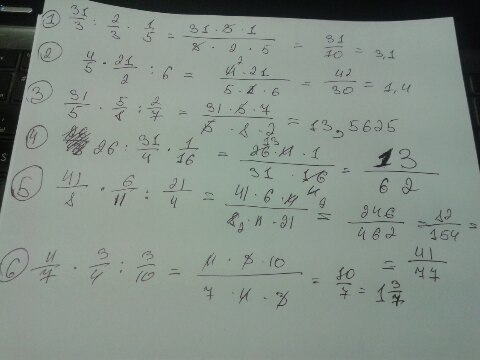 ① 31/3 : 2/3 · 1/5 = (31 · 3 · 1)/(3 · 2 · 5) = 31/10 = 3,1
② 4/5 · 21/2 : 6 = (4 · 21)/(5 · 2 · 6) = 42/30 = 1,4
③ 31/5 · 5/8 : 2/7 = (31 · 5 · 7)/(5 · 8 · 2) = 13,5625
④ 26 · 31/4 · 1/16 = (26 · 4 · 1)/(31 · 16) = 13/62
⑤ 41/8 · 6/11 : 21/4 = (41 · 6 · 4)/(8 · 11 · 21) = 246/462 = 82/154 =
= 41/77
⑥ 4/7 · 3/4 : 3/10 = (4 · 3 · 10)/(7 · 4 · 3) = 10/7 = 1 3/7